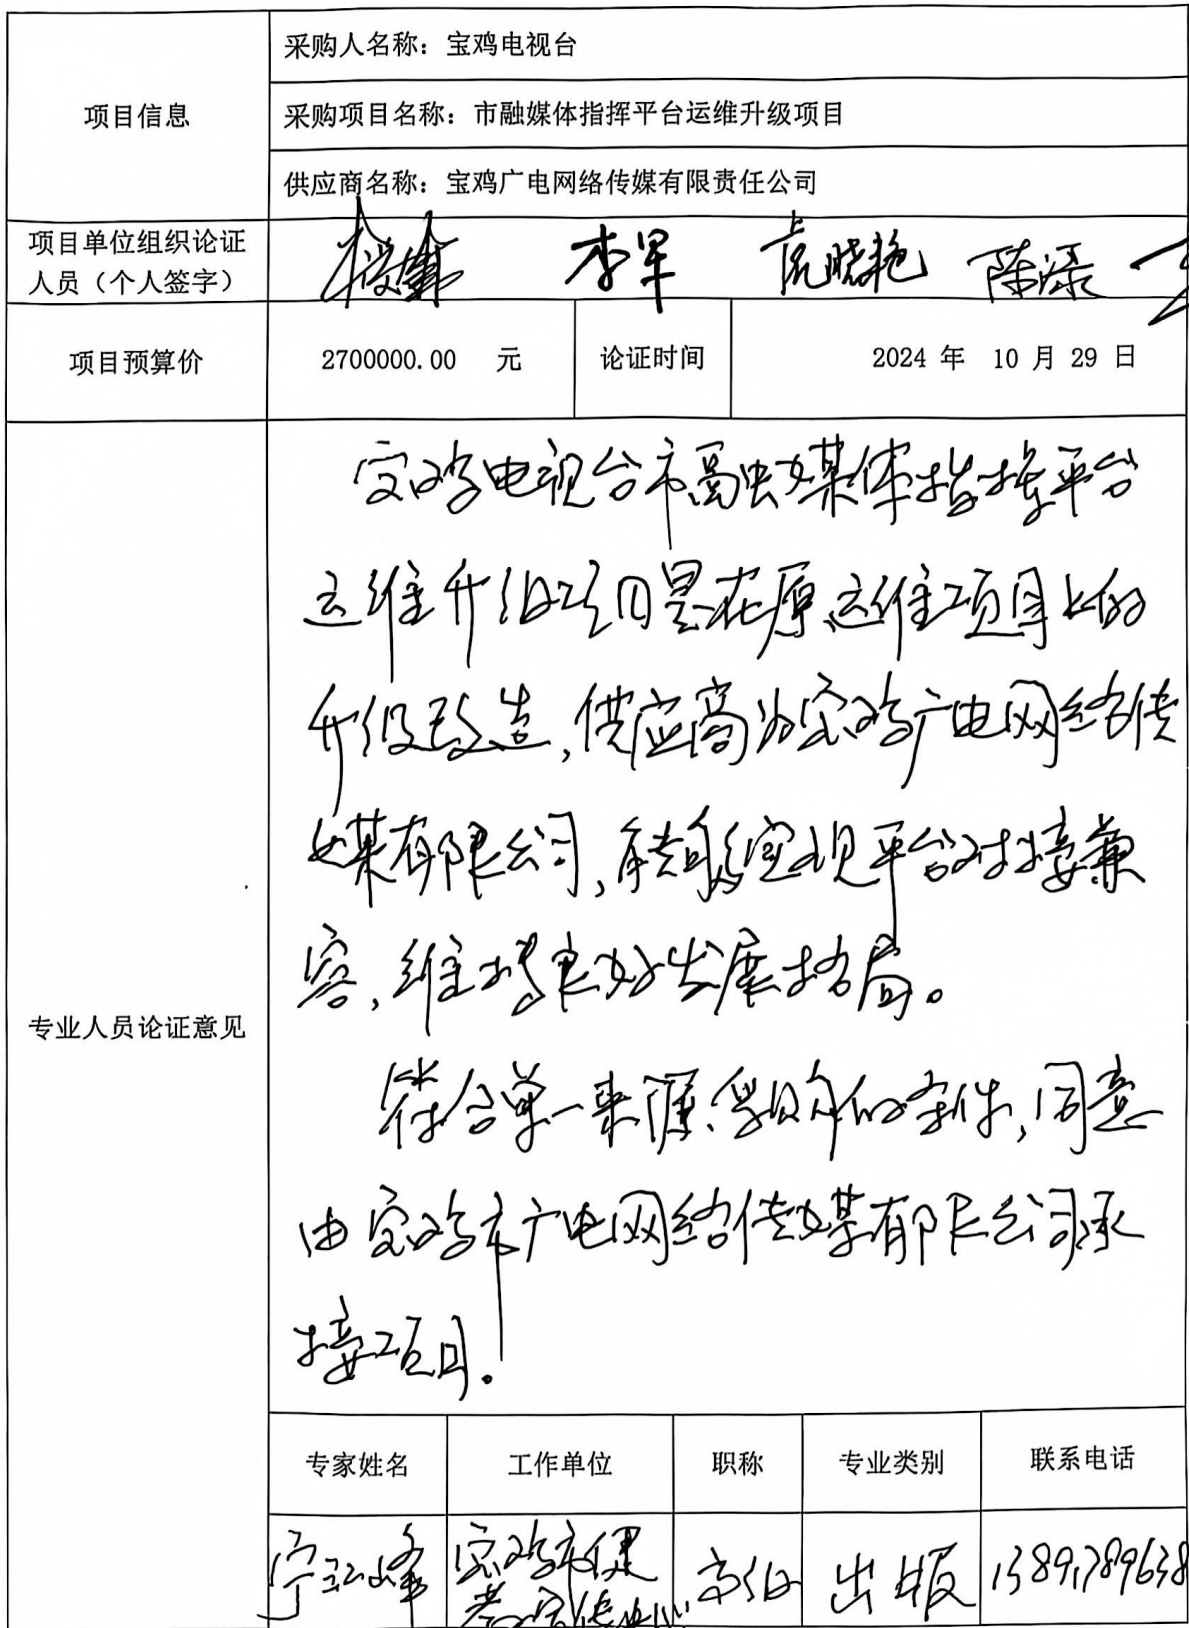 项目信息
采购人名称：宝鸡电视台
采购项目名称：市融媒体指挥平台运维升级项目
供应商名称：宝鸡广电网络传媒有限责任公司
项目单位组织论证
人员（个人签字）
李军 虎晓艳 陈添
项目预算价 2700000.00 元 论证时间 2024 年 10 月 29 日
专业人员论证意见
宝鸡电视台市融媒体指挥平台
运维升级项目是在原运维项目上的
升级改造，供应商为宝鸡广电网络传
媒有限公司，能够实现平台对接兼
容，维持良好发展格局。
符合单一来源采购的条件，同意
由宝鸡市广电网络传媒有限公司承
接项目。
专家姓名 工作单位 职称 专业类别 联系电话
宁江峰 宝鸡市健 高级 出版